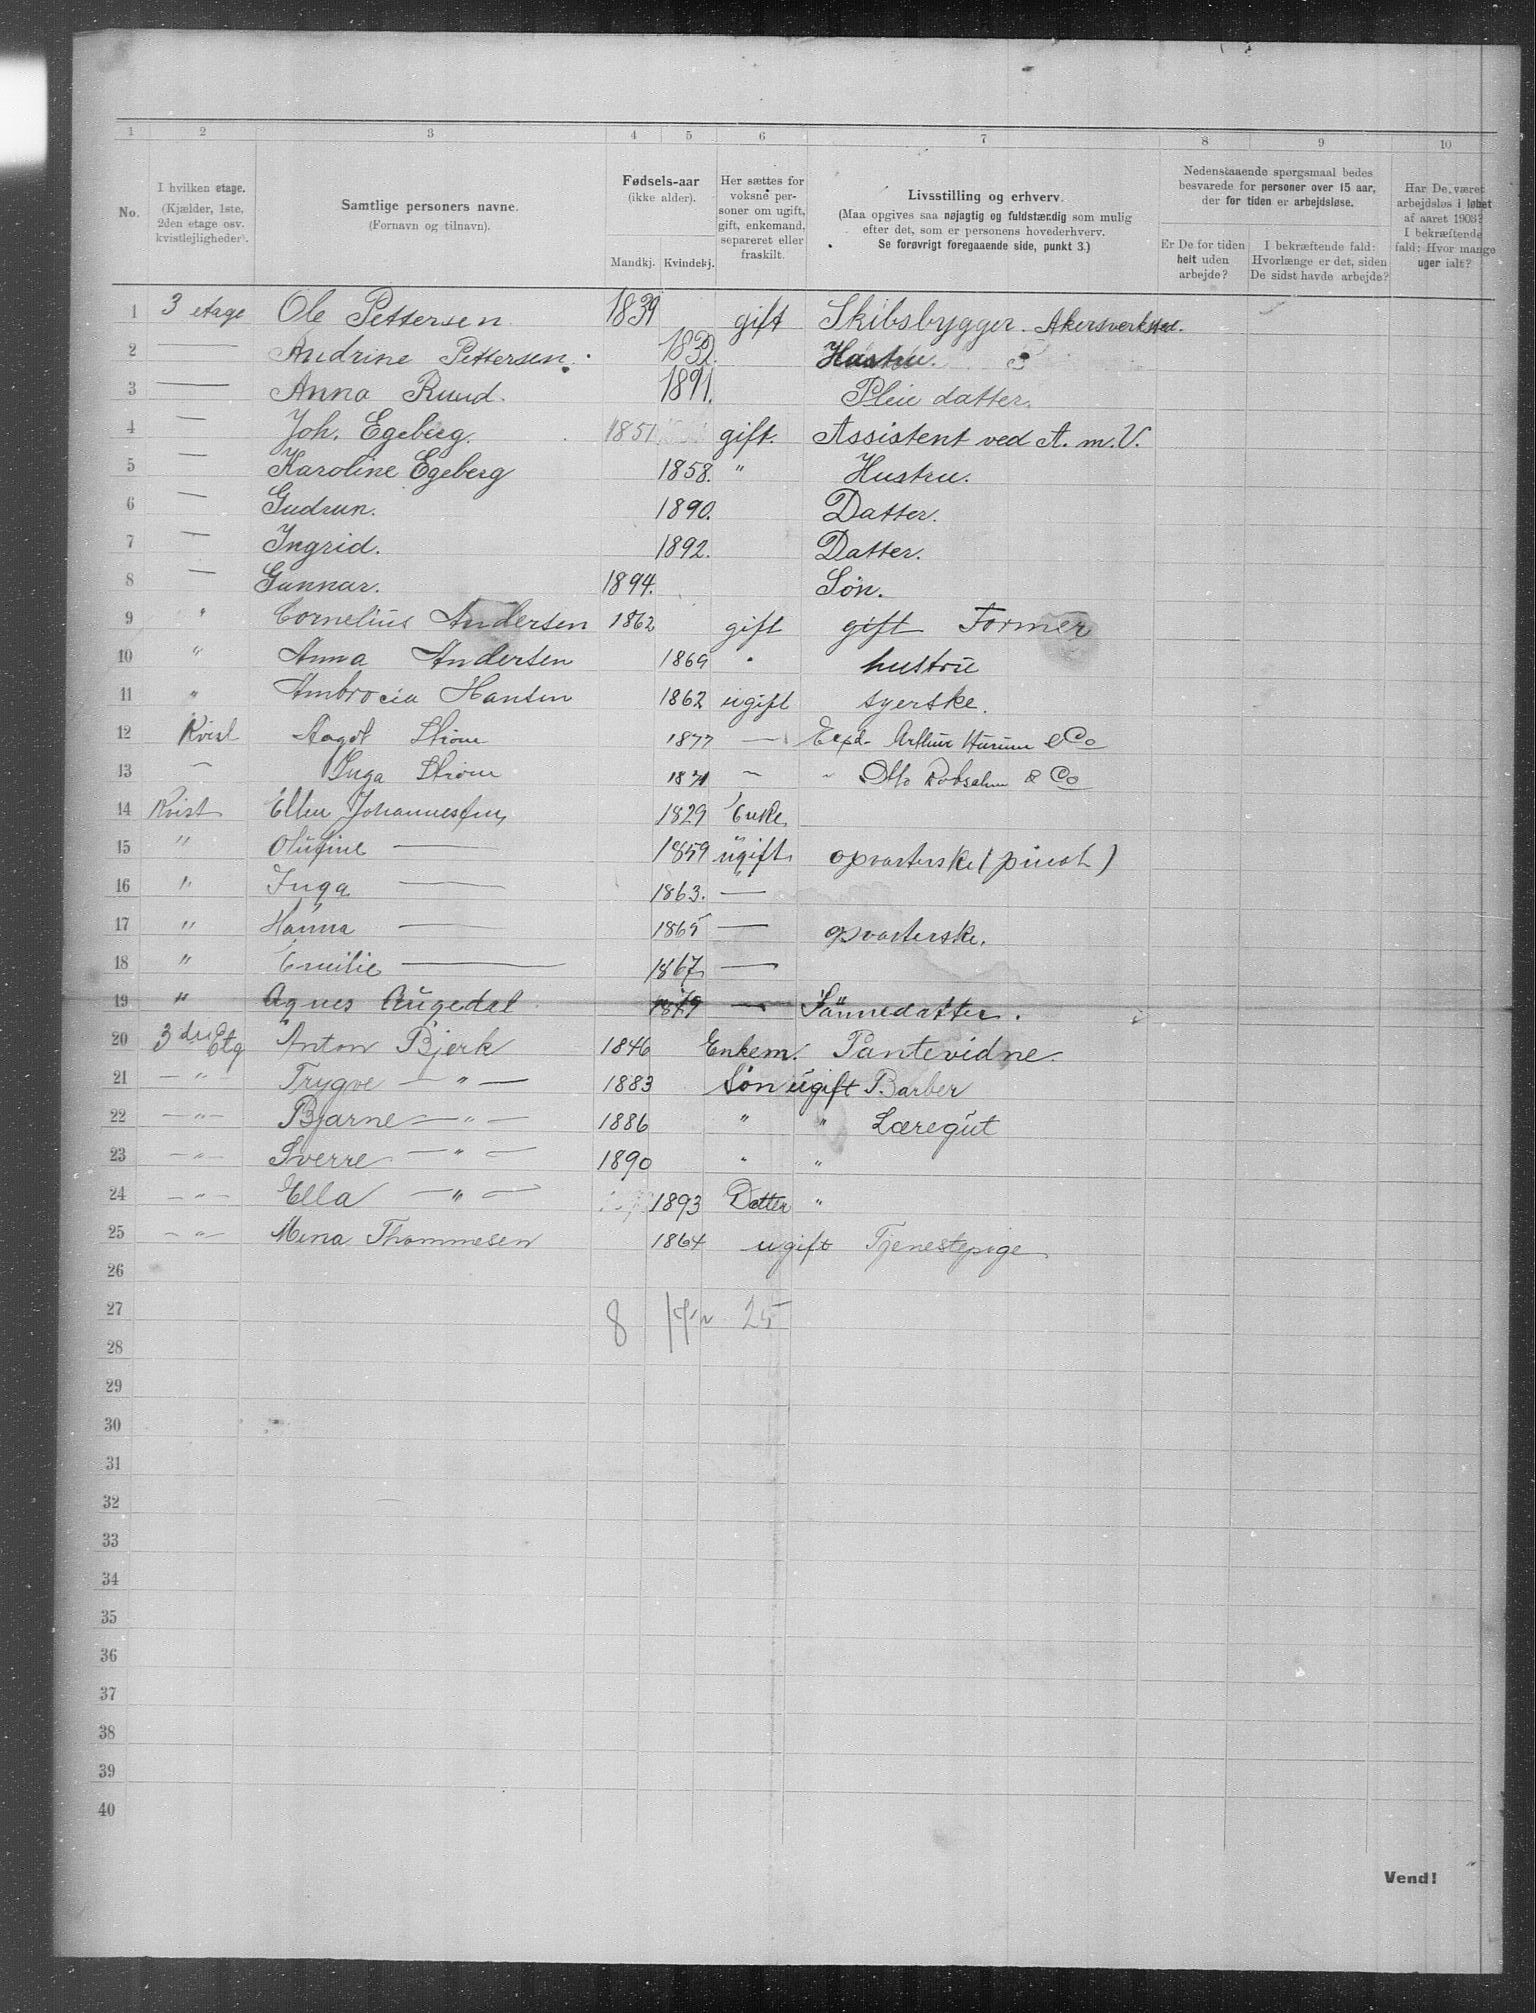 1 2 3 4 5 6 7 8 9 10
No. I hvilken etage. (Kjælder, 1ste, 2den etage osv. kvistlejligheder). Samtlige personers navne. (Fornavn og tilnavn). Fødsels-aar (ikke alder). Mandkj. Kvindekj. Her sættes for voksne personer om ugift, gift, enkemand, separeret eller fraskilt. Livsstilling og erhverv. (Maa opgives saa nøjagtig og fuldstændig som mulig efter det, som er personens hovederhverv. Se forøvrigt foregaaende side, punkt 3.) Nedenstaaende spørgsmaal bedes besvarede for personer over 15 aar, der for tiden er arbejdsløse. Er De for tiden helt uden arbejde? I bekræftende fald: Hvorlænge er det, siden De sidst havde arbejde? Har De været arbejdsløs i løbet af aaret 1903? I bekræftende fald: Hvor mange uger ialt?
1 3 etage Ole Pettersen 1839 gift Skibsbygger. Akersverksted.
2 — Andrine Pettersen. 1832. Hustru.
3 — Anna Ruud. 1891. Pleie datter.
4 — Joh. Egeberg. 1851 gift. Assistent ved A. m. V.
5 — Karoline Egeberg 1858. " Hustru.
6 — Gudrun. 1890. Datter.
7 — Ingrid. 1892. Datter.
8 — Gunnar. 1894. Søn.
9 " Cornelius Andersen 1862 gift gift Former
10 " Anna Andersen 1869 " hustru
11 " Ambrocia Hansen 1862 ugift syerske.
12 Kvist Aagot Strøm 1877 — Expd. Arthur Hurum & Co
13 — Inga Strøm 1871 — " Otto Robsahm & Co
14 Kvist Ellen Johannessen, 1829 Enke
15 " Olufine — 1859 ugift. opvarterske (privat)
16 " Inga — 1863. —
17 " Hanna — 1865 — opvarterske.
18 " Emilie — 1867 —
19 " Agnes Augedal 1879 — Sønnedatter.
20 3die Etg Anton Bjerk 1846 Enkem. Pantevidne.
21 — " — Trygve — " — 1883 Søn ugift Barber
22 — " — Bjarne — " — 1886 " " Læregut
23 — " — Sverre — " — 1890 " "
24 — " — Ella — " — 1893 Datter "
25 — " — Mina Thommesen 1864 ugift Tjenestepige
26
27 8 17 25
28
29
30
31
32
33
34
35
36
37
38
39
40
Vend!